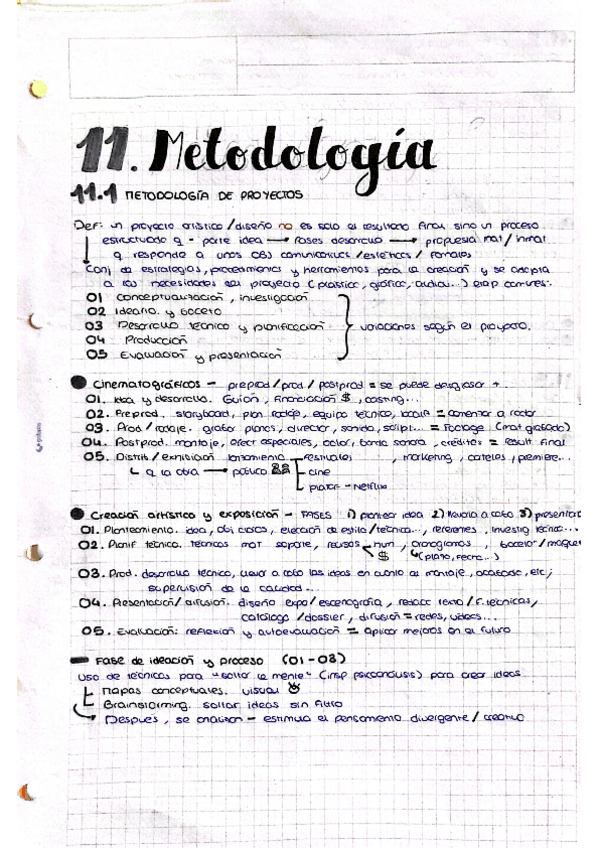 11. Metodología
11.1 METODOLOGÍA DE PROYECTOS
Def: un proyecto artístico/diseño no es solo el resultado final sino un proceso
estructurado q - parte idea → fases desarrollo → propuesta mat/inmat
q responde a unos OBJ comunicativos/estéticos/formales
Conj de estrategias, procedimientos y herramientas para la creación y se adapta
a las necesidades del proyecto (plástico, gráfico, audiov...) etap comunes:
01 conceptualización, investigación
02 Ideario y boceto
03 Desarrollo técnico y planificación } variaciones según el proyecto.
04 Producción
05 Evaluación y presentación
● Cinematográficos - preprod/prod/postprod = se puede desglosar +.
01. Idea y desarrollo. Guion, financiación $, casting...
02. Preprod. storyboard, plan rodaje, equipo técnico, = comenzar a rodar
03. Prod/rodaje. grabar planos, director, sonido, script... = footage (mat grabado)
04. Postprod. montaje, efect especiales, color, banda sonora, créditos = result final
05. Distrib/exhibición lanzamiento festivales, marketing, carteles, premiere...
↳ q la obra → público cine
plataf - Netflix
● Creación artística y exposición - FASES 1) plantear idea 2) llevarla a cabo 3) presentar
01. Planteamiento. idea, obj claros, elección de estilo/técnica..., referentes, investig técnica...
02. Planif técnica. técnicas mat soporte, recursos hum, cronogramas, bocetor/maque
$ (plazo, fecha...)
03. Prod. desarrollo técnico, llevar a cabo las ideas en cuanto al montaje, acabado, etc;
supervisión de la calidad...
04. Presentación/difusión. diseño expo/escenografía, redacc texto/f. técnicas,
catálogo/dossier, difusión = redes, videos...
05. Evaluación: reflexión y autoevaluación = aplicar mejoras en el futuro
Fase de ideación y proceso (01-03)
Uso de técnicas para "soltar la mente" (insp psicoanálisis) para crear ideas
Mapas conceptuales. visual
Brainstorming. soltar ideas sin filtro
Después, se analizan - estimula el pensamiento divergente/creativo